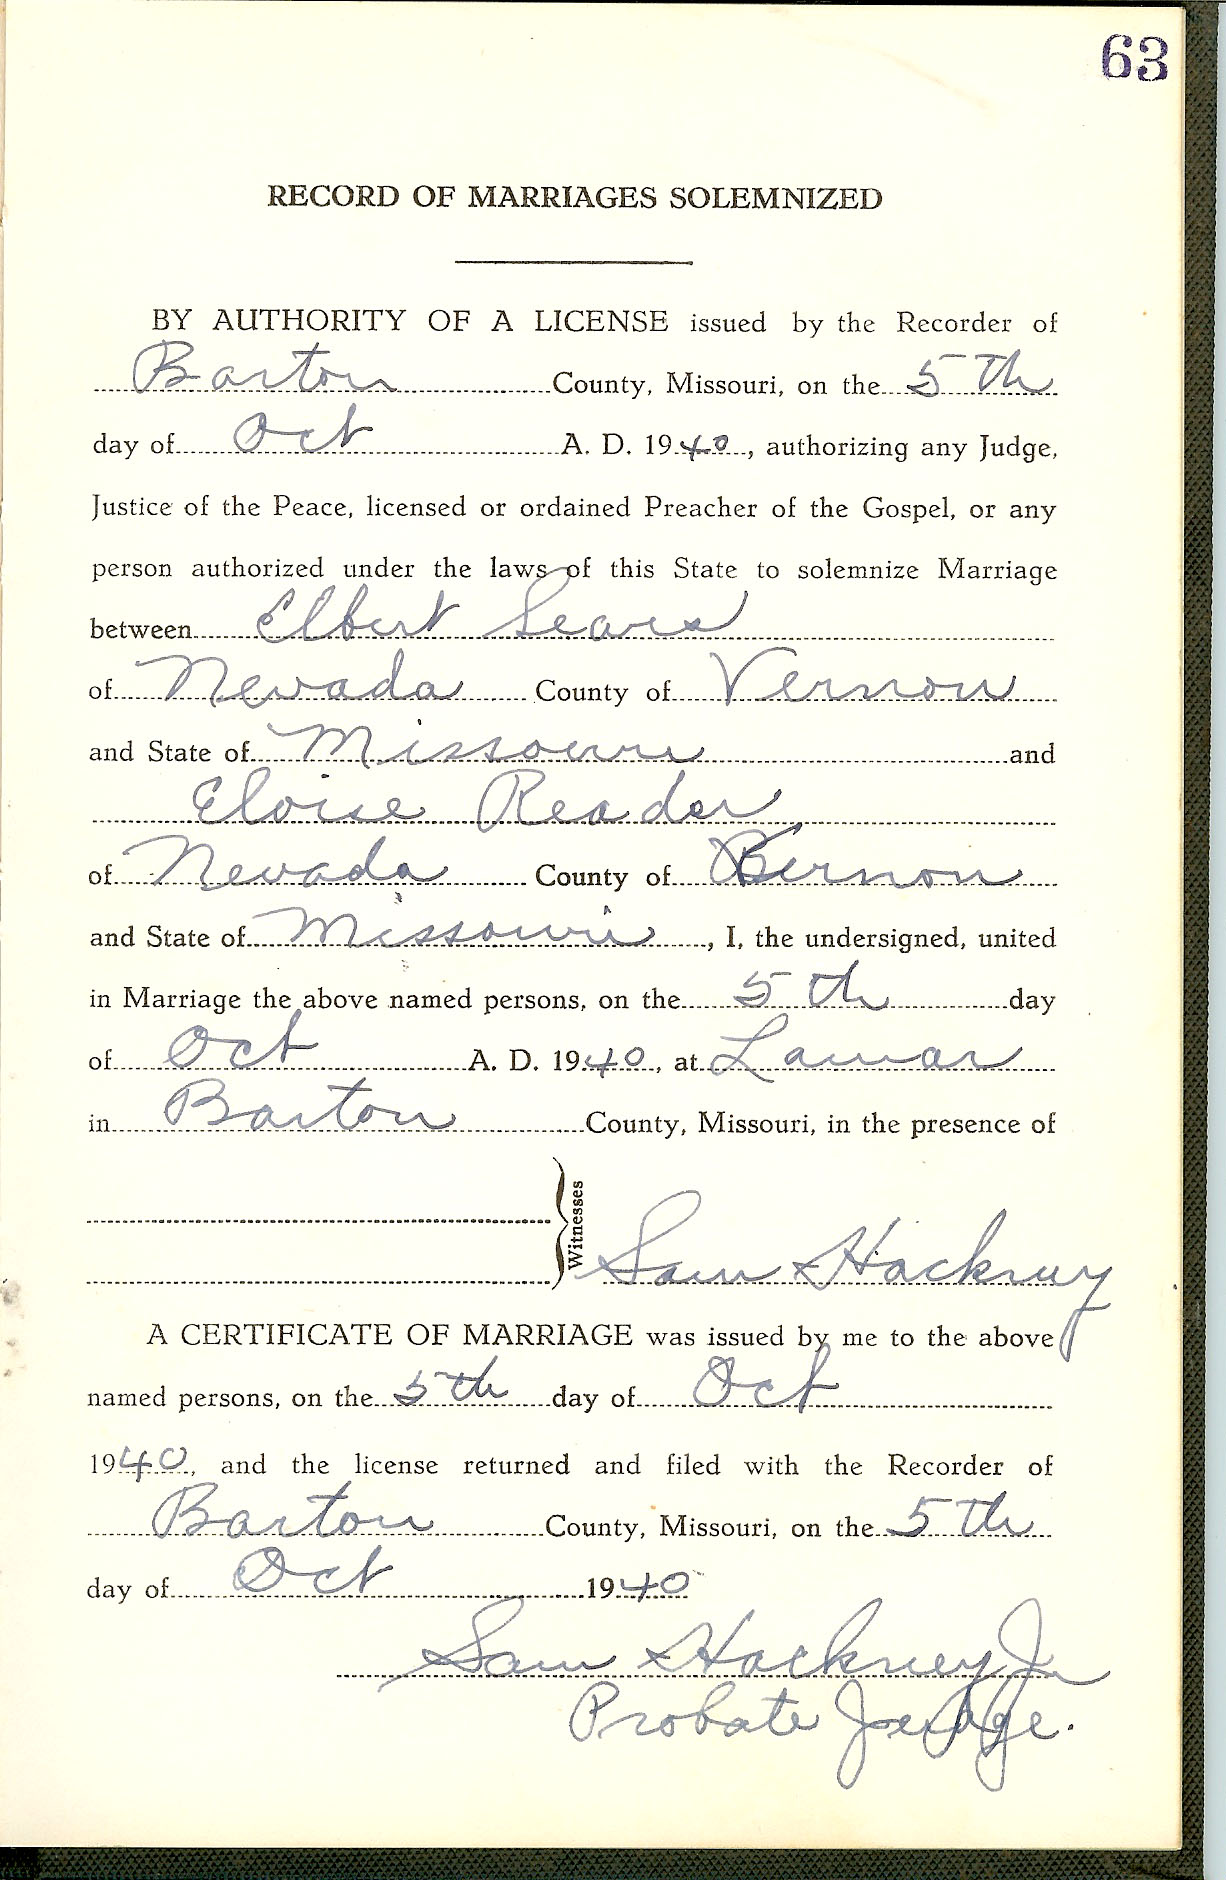 63
RECORD OF MARRIAGES SOLEMNIZED
BY AUTHORITY OF A LICENSE issued by the Recorder of
Barton County, Missouri, on the 5th
day of Oct A. D. 1940, authorizing any Judge,
Justice of the Peace, licensed or ordained Preacher of the Gospel, or any
person authorized under the laws of this State to solemnize Marriage
between Elbert Sears
of Nevada County of Vernon
and State of Missouri and
Eloise Reader
of Nevada County of Bernon
and State of Missouri, I, the undersigned, united
in Marriage the above named persons, on the 5th day
of Oct A. D. 1940, at Lamar
in Barton County, Missouri, in the presence of
Witnesses
Sam Hackney
A CERTIFICATE OF MARRIAGE was issued by me to the above
named persons, on the 5th day of Oct
1940, and the license returned and filed with the Recorder of
Barton County, Missouri, on the 5th
day of Oct 1940
Sam Hackney Jr
Probate Judge.